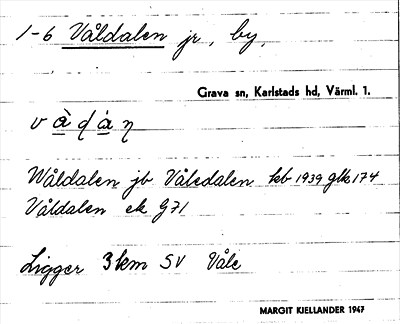 1-6 Våldalen jr, by,
Grava sn, Karlstads hd, Värml. 1.
Wåldalen jb Våledalen kb 1939 glk 174
Våldalen ek G71
Ligger 3 km SV Våle
MARGIT KIELLANDER 1947